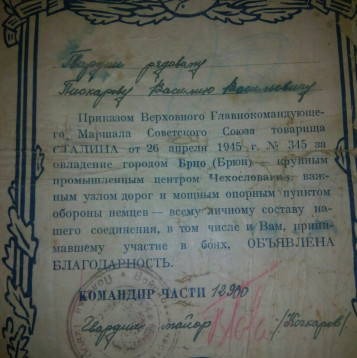 Гвардии рядовому
Пискареву Василию Васильевичу
Приказом Верховного Главнокомандующе-
го Маршала Советского Союза товарища
СТАЛИНА от 26 апреля 1945 г. № 345 за
овладение городом Брно (Брюн) — крупным
промышленным центром Чехословакии, важ-
ным узлом дорог и мощным опорным пунктом
обороны немцев — всему личному составу на-
шего соединения, в том числе и Вам, прини-
мавшему участие в боях, ОБЪЯВЛЕНА
БЛАГОДАРНОСТЬ.
КОМАНДИР ЧАСТИ 12900
Гвардии майор /Кочкаров/